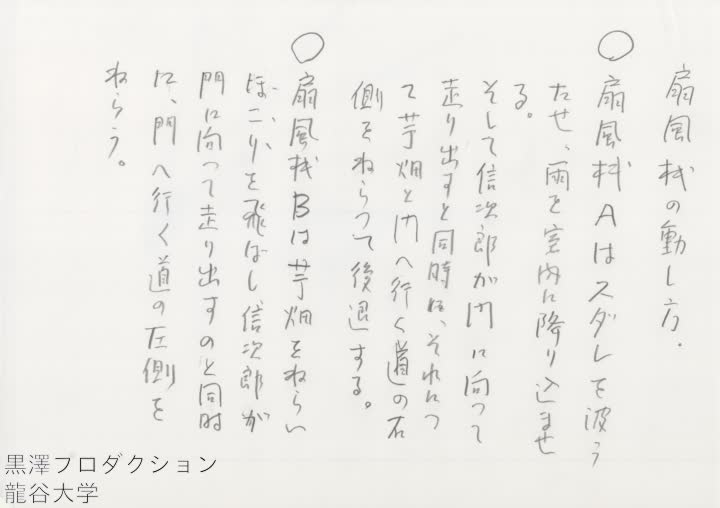 扇風机の動し方.
○扇風机Aはスダレを波う
たせ、雨を室内に降り込ませ
る。
そして信次郎が門に向って
走り出すと同時に、それにつ
て芋畑と門へ行く道の右
側をねらって後退する。
○扇風机Bは芋畑をねらい
ほこりを飛ばし信次郎が
門に向って走り出すのと同時
に、門へ行く道の左側を
ねらう。
黒澤プロダクション
龍谷大学